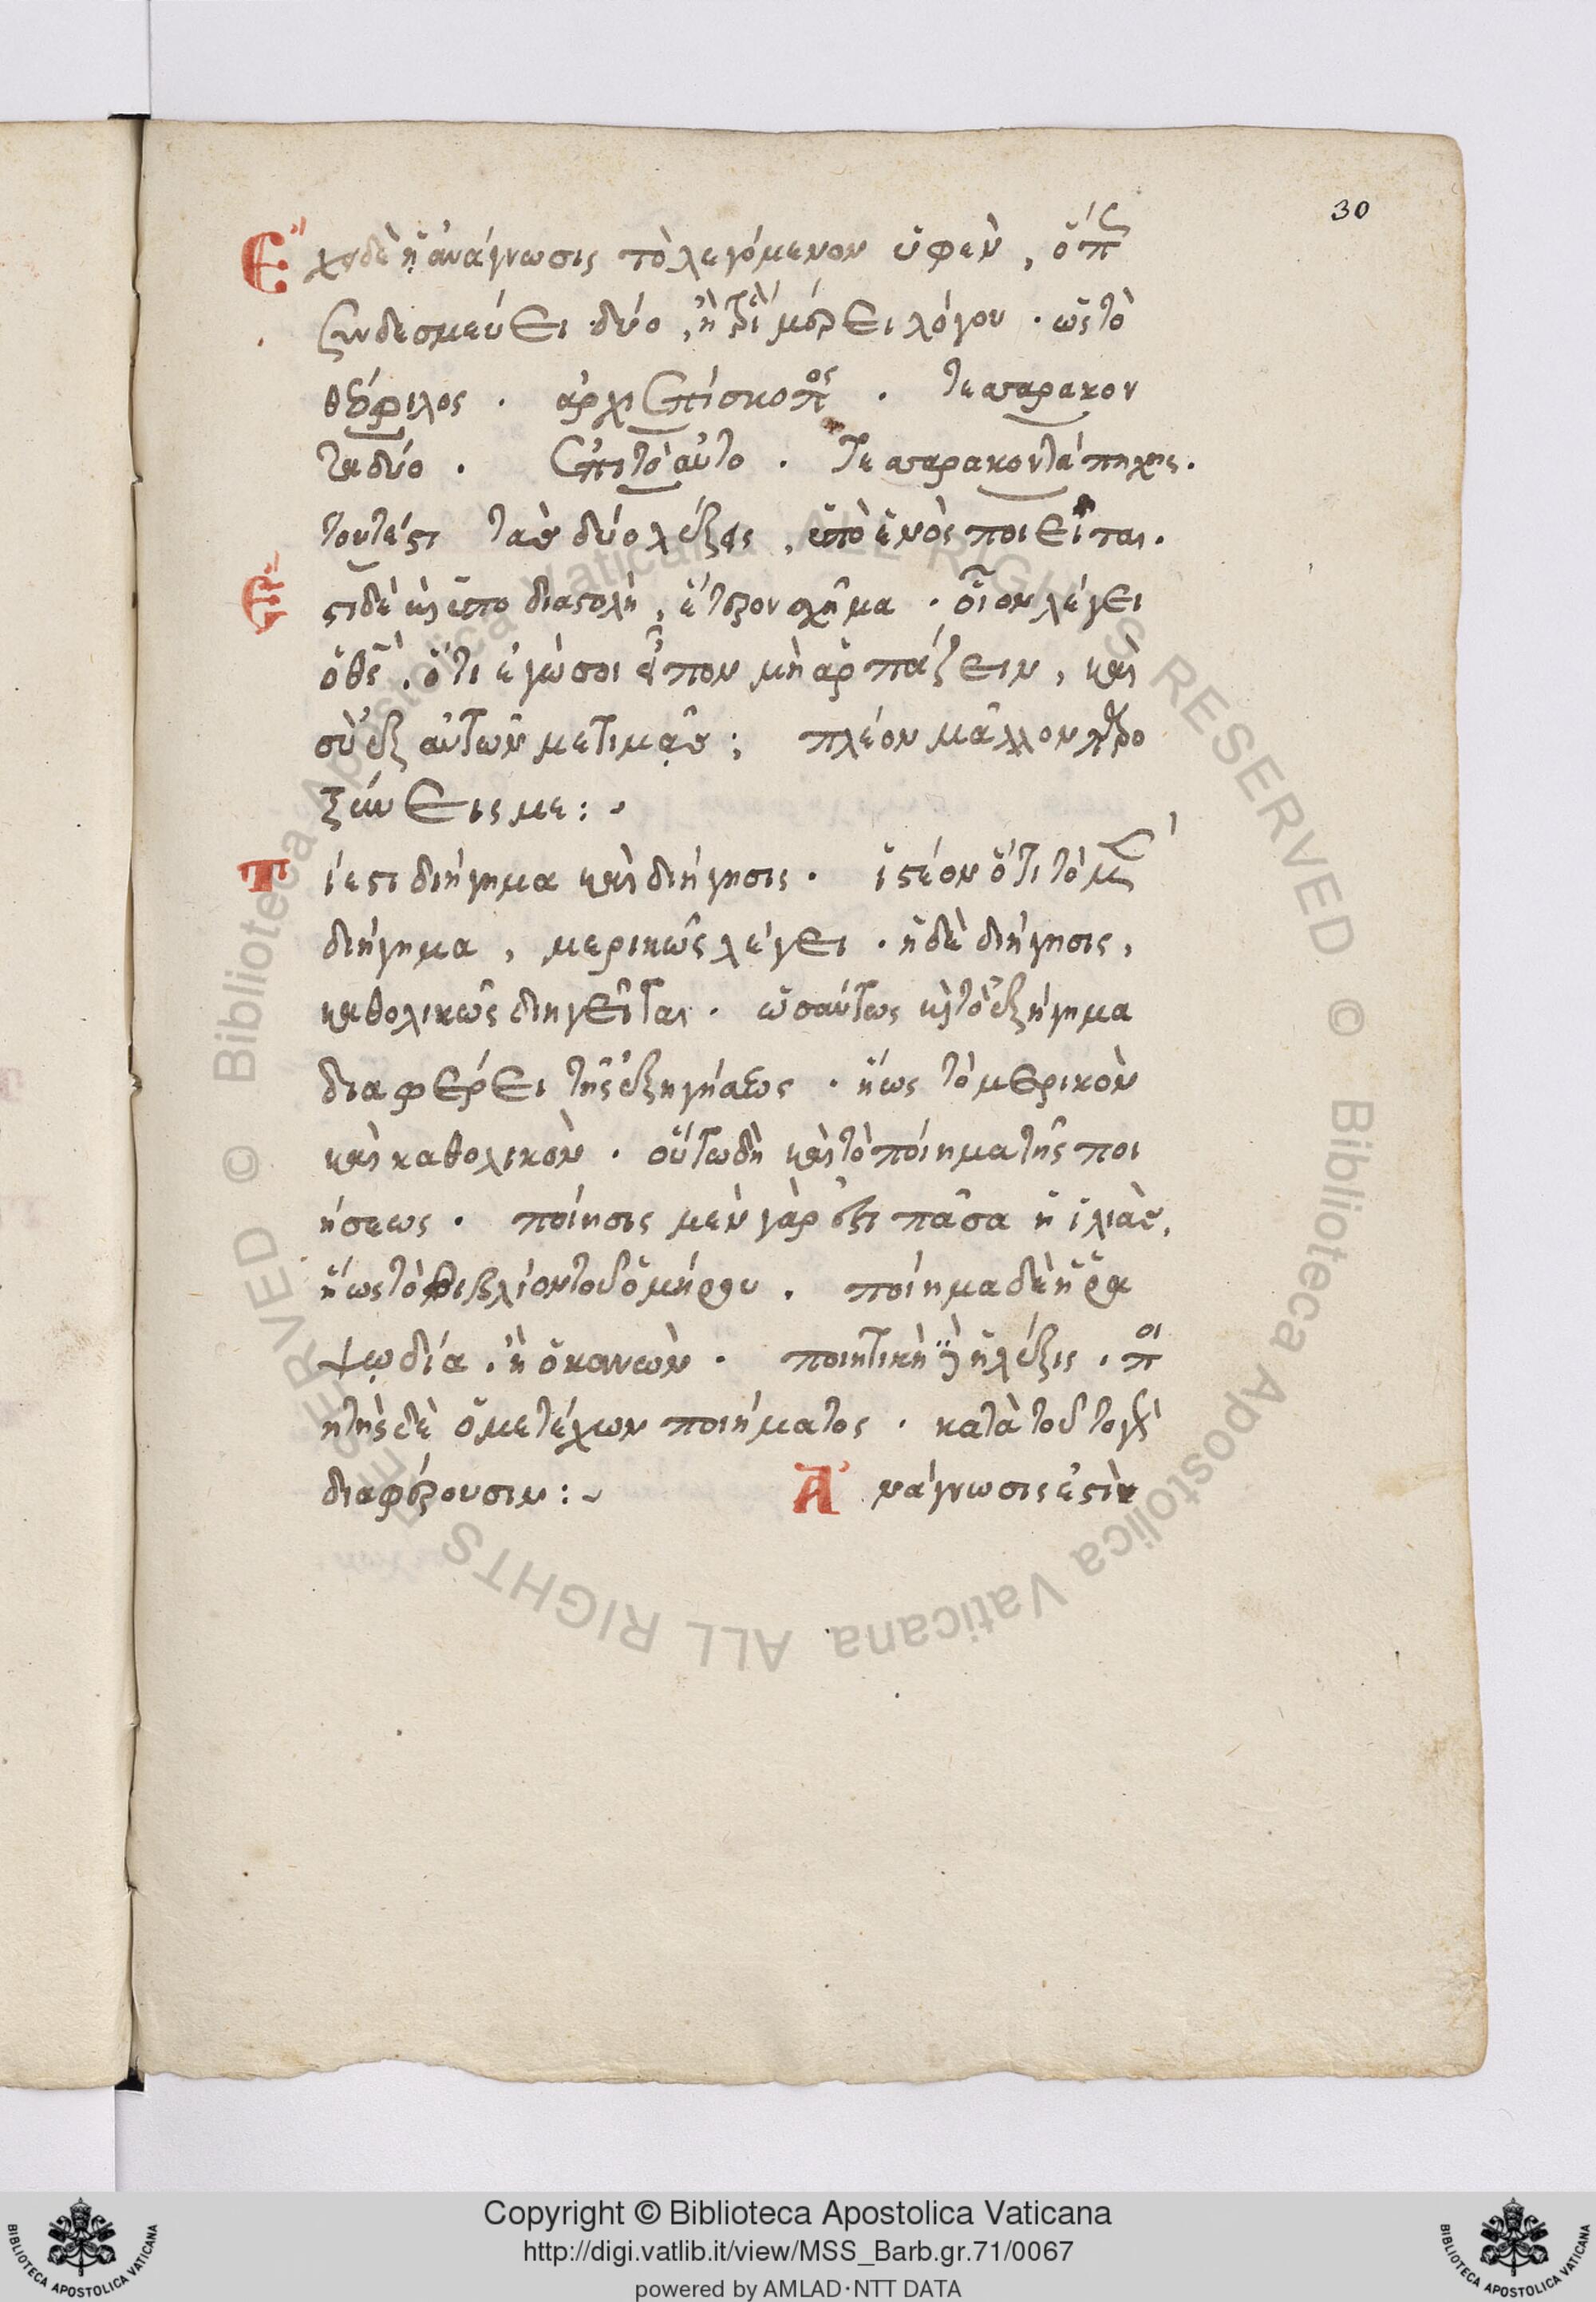 30
Ἔχει δὲ ἡ ἀνάγνωσις τὸ λεγόμενον ὑφὲν, ὅπερ
συνδεσμεύει δύο, ἢ τρία μέρει λόγου · ὡς τὸ
θεόφιλος · ἀρχιεπίσκοπος · τεσσαρακον
ταδύο · ἐπιτὸαὐτο · τεσσαρακοντάπηχις.
τουτέστι τὰς δύο λέξεις, ὑπὸ ἑνὸς ποιεῖται.
Ἔστι δὲ καὶ ὑπο διαστολὴ, ἕτερον σχῆμα · οἷον λέγει
ὁ θεὸς, ὅτι ἐγὼ σοι εἶπον μὴ ἁρπάζειν, καὶ
σὺ ἐξ αὐτῶν με τιμᾷς; πλέον μᾶλλον παρο
ξύνεις με:
Τί ἐστι διήγημα καὶ διήγησις · ἰστέον ὅτι τὸ μὲν
διήγημα, μερικῶς λέγει · ἡ δὲ διήγησις,
καθολικῶς διηγεῖται · ὡσαύτως καὶ τὸ ἐξήγημα
διαφέρει τῆς ἐξηγήσεως · ἤως τὸ μερικὸν
καὶ καθολικὸν · οὕτω δὴ καὶ τὸ ποίημα τῆς ποι
ήσεως · ποίησις μὲν γὰρ ἐστι πᾶσα ἡ ἰλιὰς,
ἤως τὸ βιβλίον τοῦ ὁμήρου · ποίημα δὲ ἡ ῥα
ψῳδία · ἢ ὁ κανὼν · ποιητικὴ δὲ ἡ λέξις · ποι
ητὴς δὲ ὁ μετέχων ποιήματος · κατὰ τοῦτο γὰρ
διαφέρουσιν: Ἀνάγνωσις ἐστὶν
Copyright © Biblioteca Apostolica Vaticana
http://digi.vatlib.it/view/MSS_Barb.gr.71/0067
powered by AMLAD·NTT DATA
© Biblioteca Apostolica Vaticana ALL RIGHTS RESERVED © Biblioteca Apostolica Vaticana ALL RIGHTS RESERVED
BIBLIOTECA APOSTOLICA VATICANA
BIBLIOTECA APOSTOLICA VATICANA